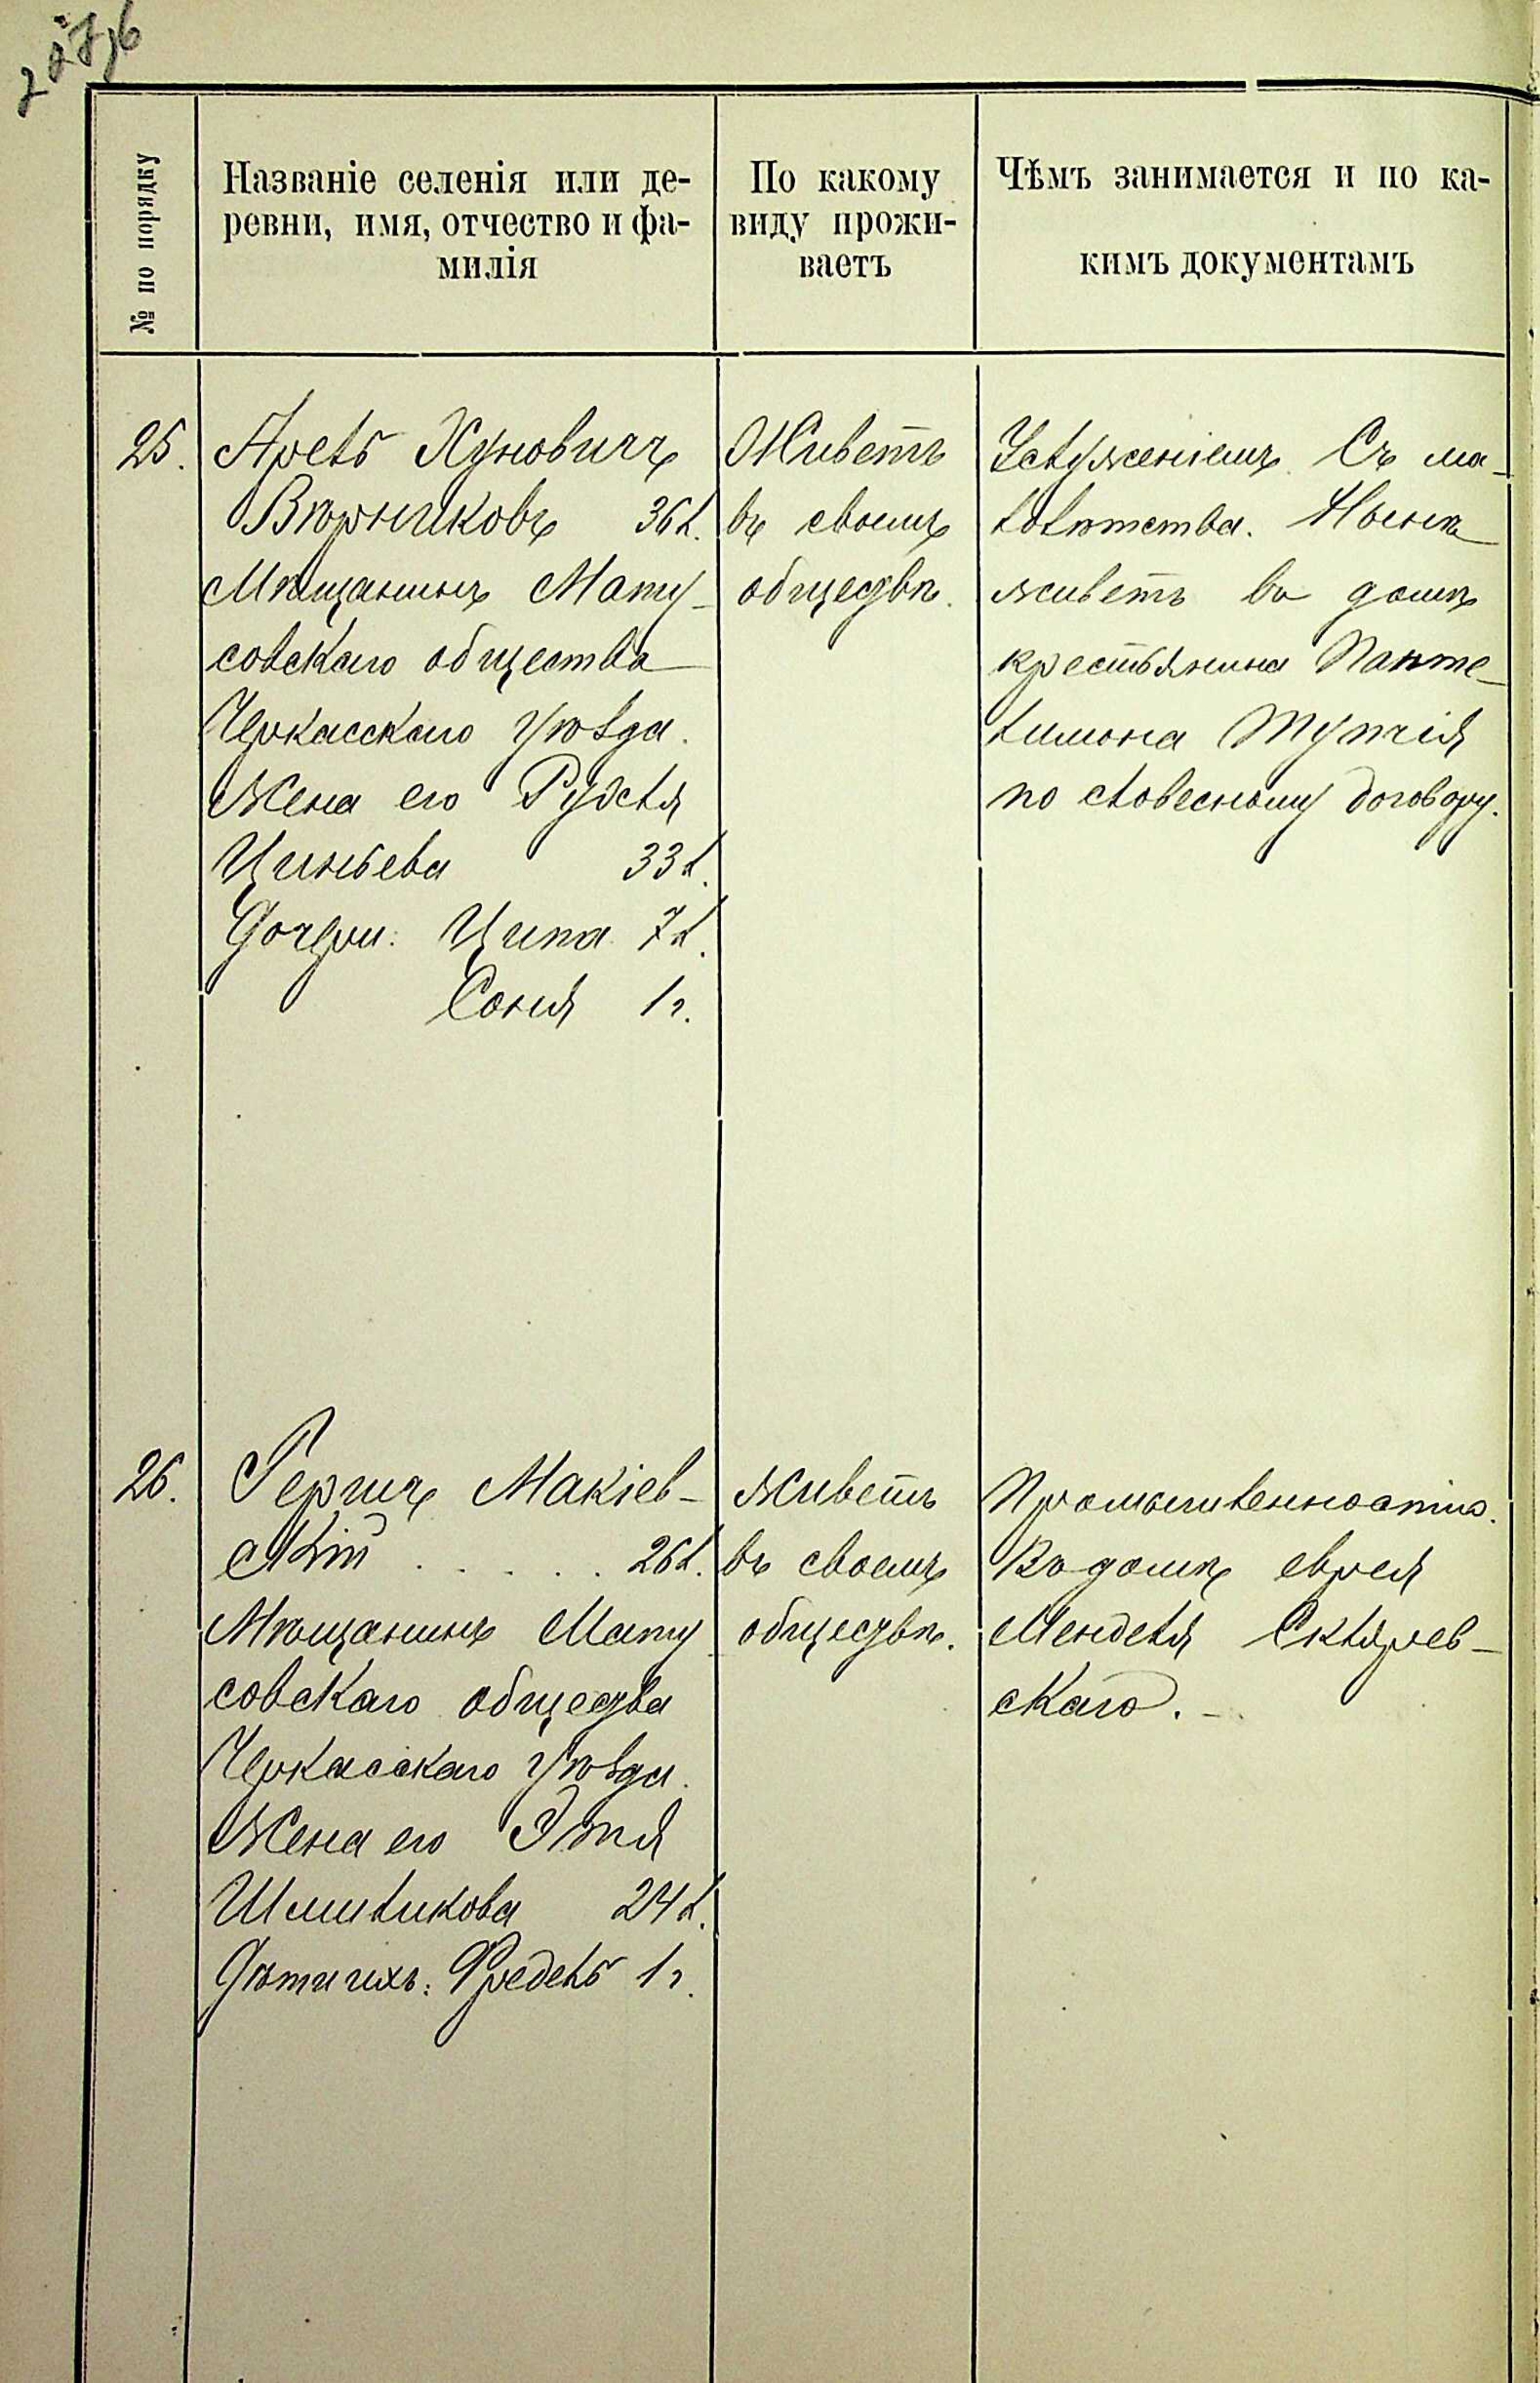 № по порядку
Названіе селенія или де-
ревни, имя, отчество и фа-
милія
По какому
виду прожи-
ваетъ
Чѣмъ занимается и по ка-
кимъ документамъ
25.
Арель Хуновичъ
Вюрниковъ 36 л.
Мѣщанинъ Мату-
совскаго общества
Черкасскаго уѣзда.
Жена его Рудсля
Циньева 33 л.
Дочери: Ципа 7 л.
Соня 1 г.
Живетъ
въ своемъ
обществѣ.
Услуженіемъ. Съ ма-
лолѣтства. Нынѣ
живетъ въ домѣ
крестьянина Панте-
лимона
по словесному договору.
26.
Гершъ Макіев-
скій . . . . . 26 л.
Мѣщанинъ Мату
совскаго общества
Черкасскаго уѣзда.
Жена его Этя
Шмиликова 24 л.
Дѣти ихъ: Фредель 1 г.
Живетъ
въ своемъ
обществѣ.
Промышленностію.
Въ домѣ еврея
Менделя Скляров-
скаго. -